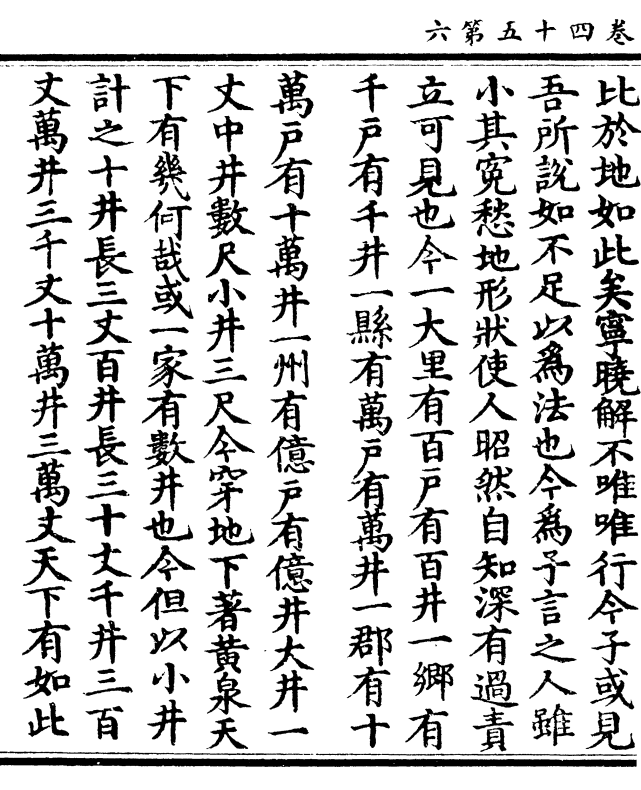 卷四十五第六
比於地如此矣寧曉解不唯唯行今子或見
吾所說如不足以爲法也今爲子言之人雖
小其冤愁地形狀使人昭然自知深有過責
立可見也今一大里有百戶有百井一鄉有
千戶有千井一縣有萬戶有萬井一郡有十
萬戶有十萬井一州有億戶有億井大井一
丈中井數尺小井三尺今穿地下著黃泉天
下有幾何哉或一家有數井也今但以小井
計之十井長三丈百井長三十丈千井三百
丈萬井三千丈十萬井三萬丈天下有如此